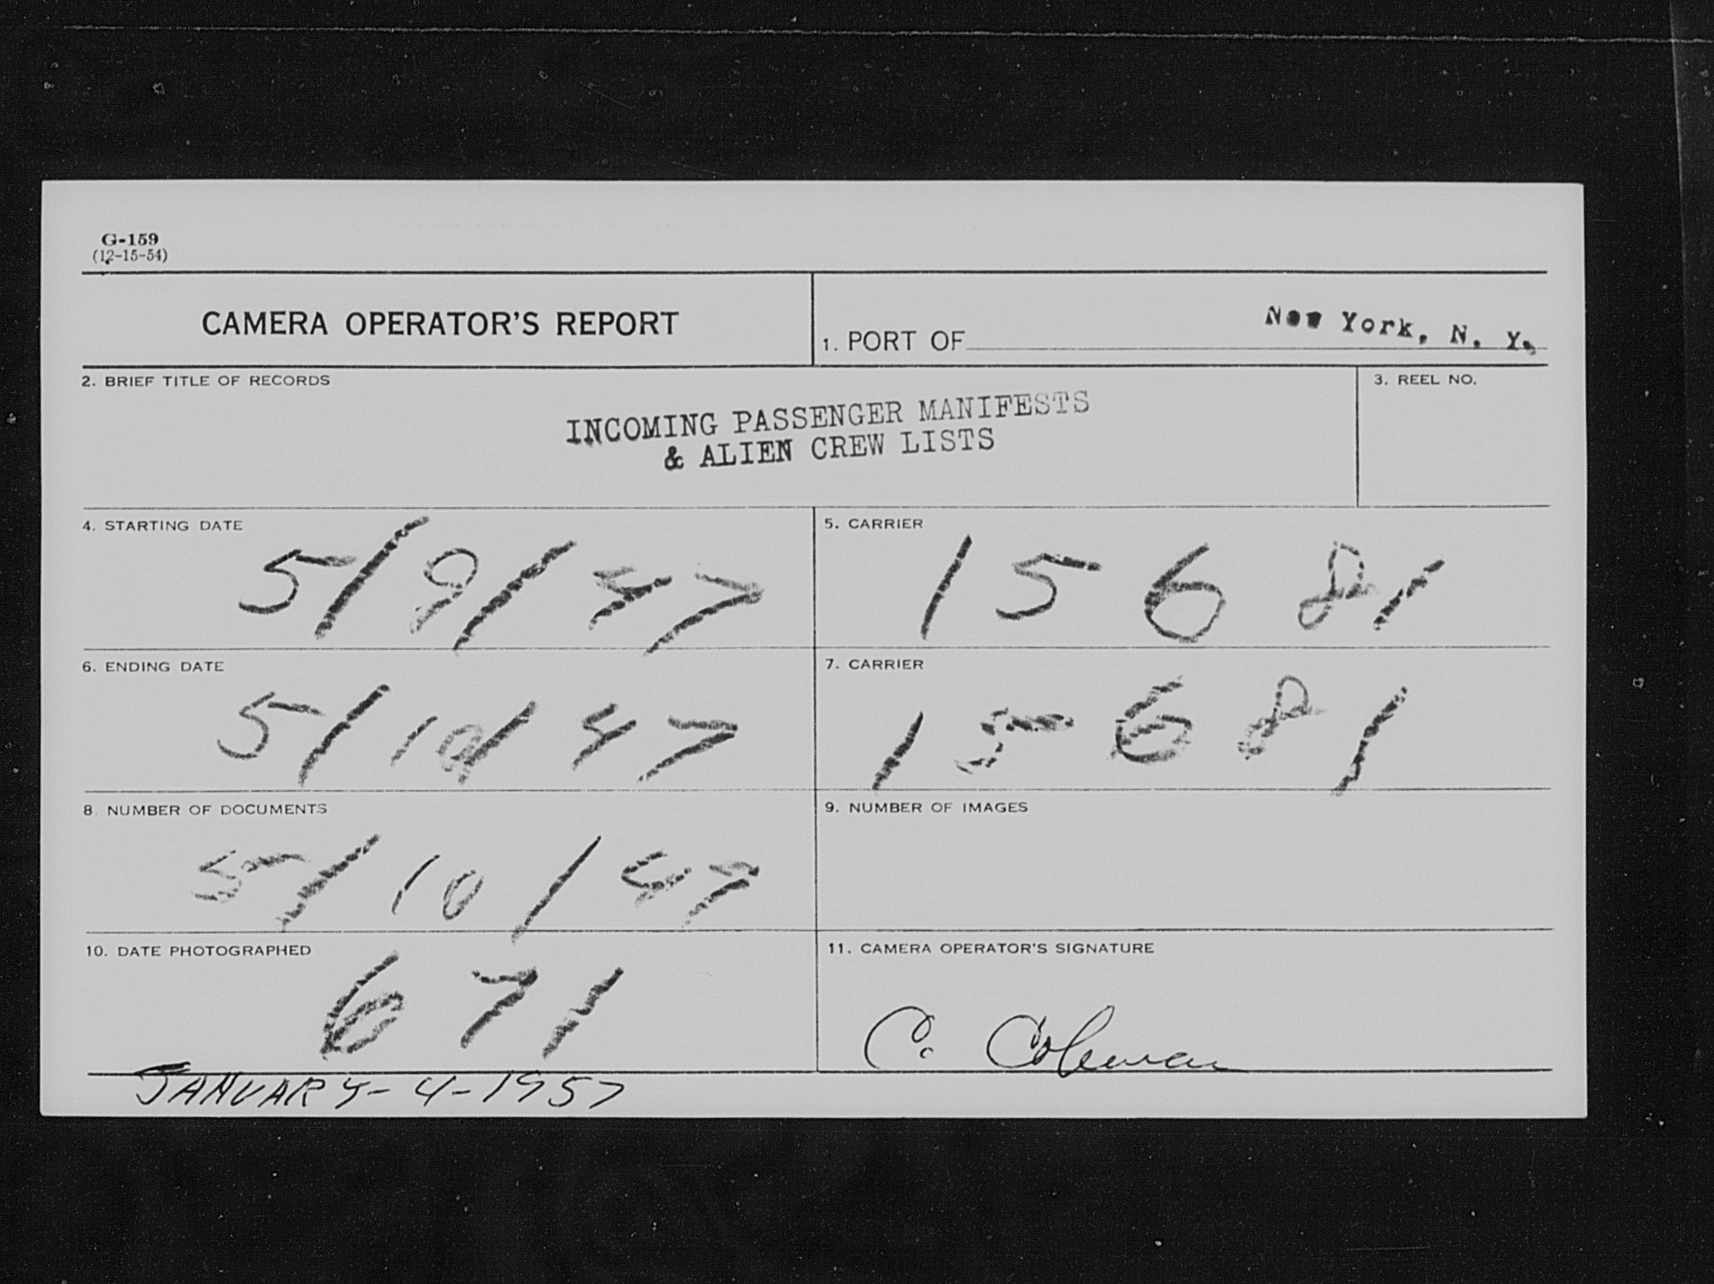 G-159
(12-15-54)
CAMERA OPERATOR'S REPORT
1. PORT OF New York, N. Y.
2. BRIEF TITLE OF RECORDS
INCOMING PASSENGER MANIFESTS
& ALIEN CREW LISTS
3. REEL NO.
4. STARTING DATE
5/9/47
5. CARRIER
15681
6. ENDING DATE
5/10/47
7. CARRIER
15681
8 NUMBER OF DOCUMENTS
5/10/47
9. NUMBER OF IMAGES
10. DATE PHOTOGRAPHED
671
JANUARY-4-1957
11. CAMERA OPERATOR'S SIGNATURE
C. Coleman